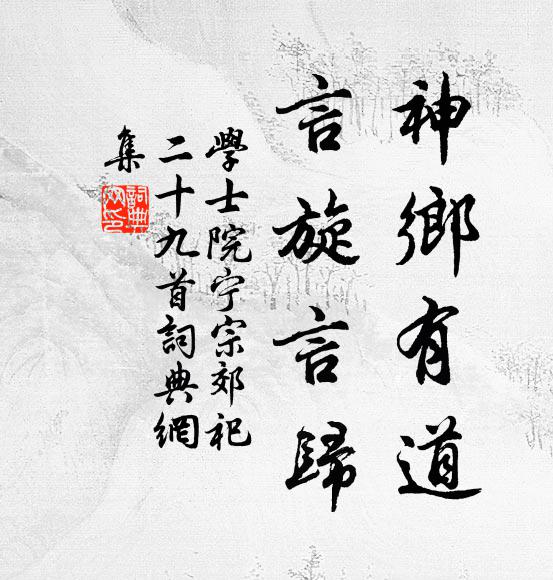 神鄉有道
言旋言歸
學士院宁宗郊祀
二十九首詞典網
集
詞典網印